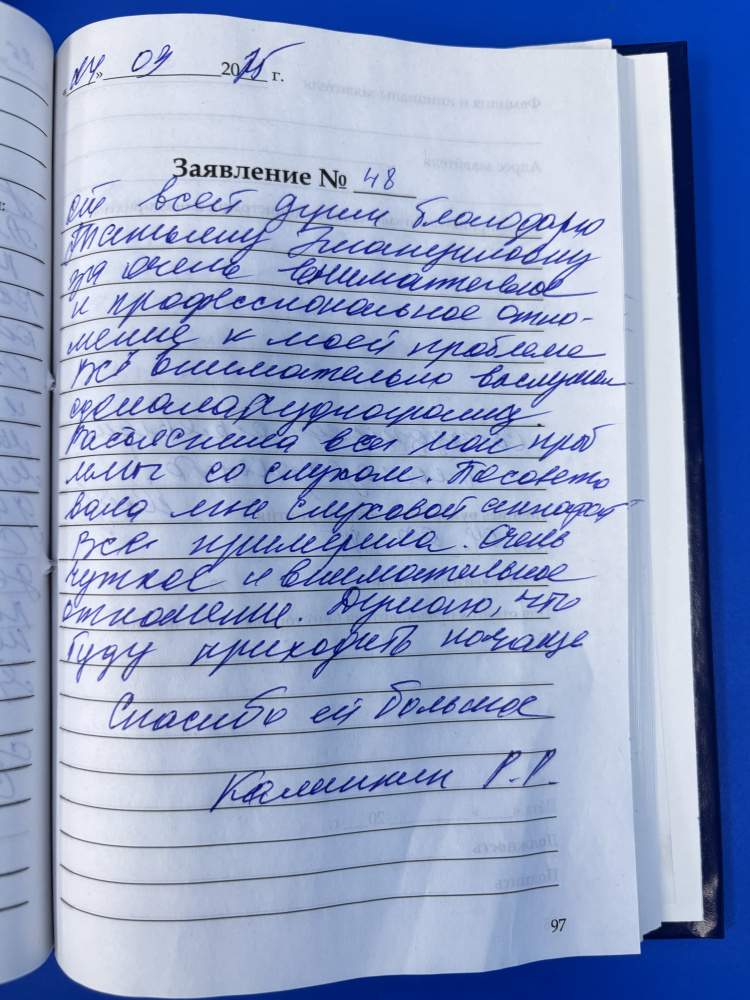 «24» 09 2025 г.
Заявление № 48
От всей души благодарю
Татьяну Эмануиловну
за очень внимательное
и профессиональное отно-
шение к моей проблеме
Всё внимательно выслушала
сделала аудиограмму.
Разъяснила все мои проб
лемы со слухом. Посовето
вала мне слуховой аппарат
Все примерила. Очень
чуткое и внимательное
отношение. Думаю, что
буду приходить почаще
Спасибо ей большое
Калинкин Р.Р.
97